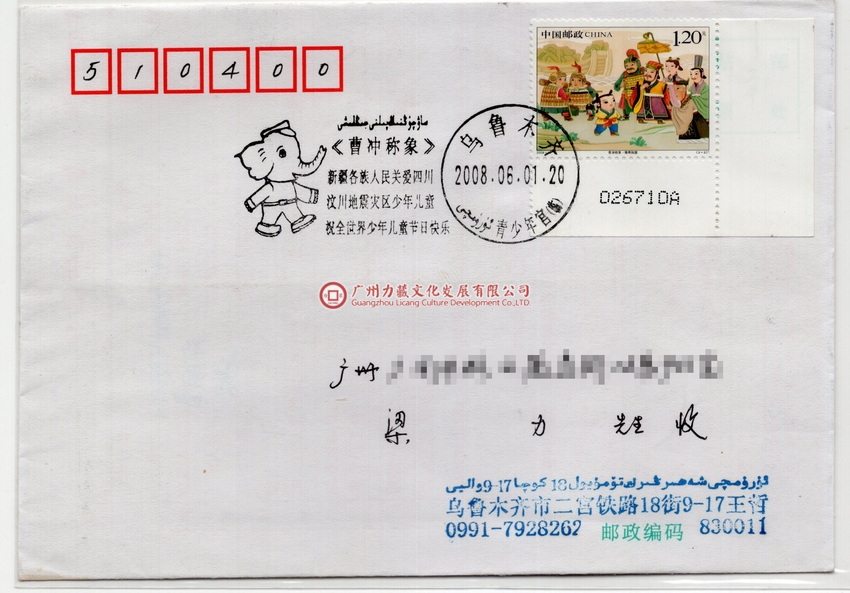 510400
中国邮政 CHINA
1.20元
026710A
《曹冲称象》
新疆各族人民关爱四川
汶川地震灾区少年儿童
祝全世界少年儿童节日快乐
乌鲁木齐
2008.06.01.20
青少年宫
广州力藏文化发展有限公司
Guangzhou Licang Culture Development Co.,LTD
广州
梁 力 先生 收
乌鲁木齐市二宫铁路18街9-17王哲
0991-7928262 邮政编码 830011